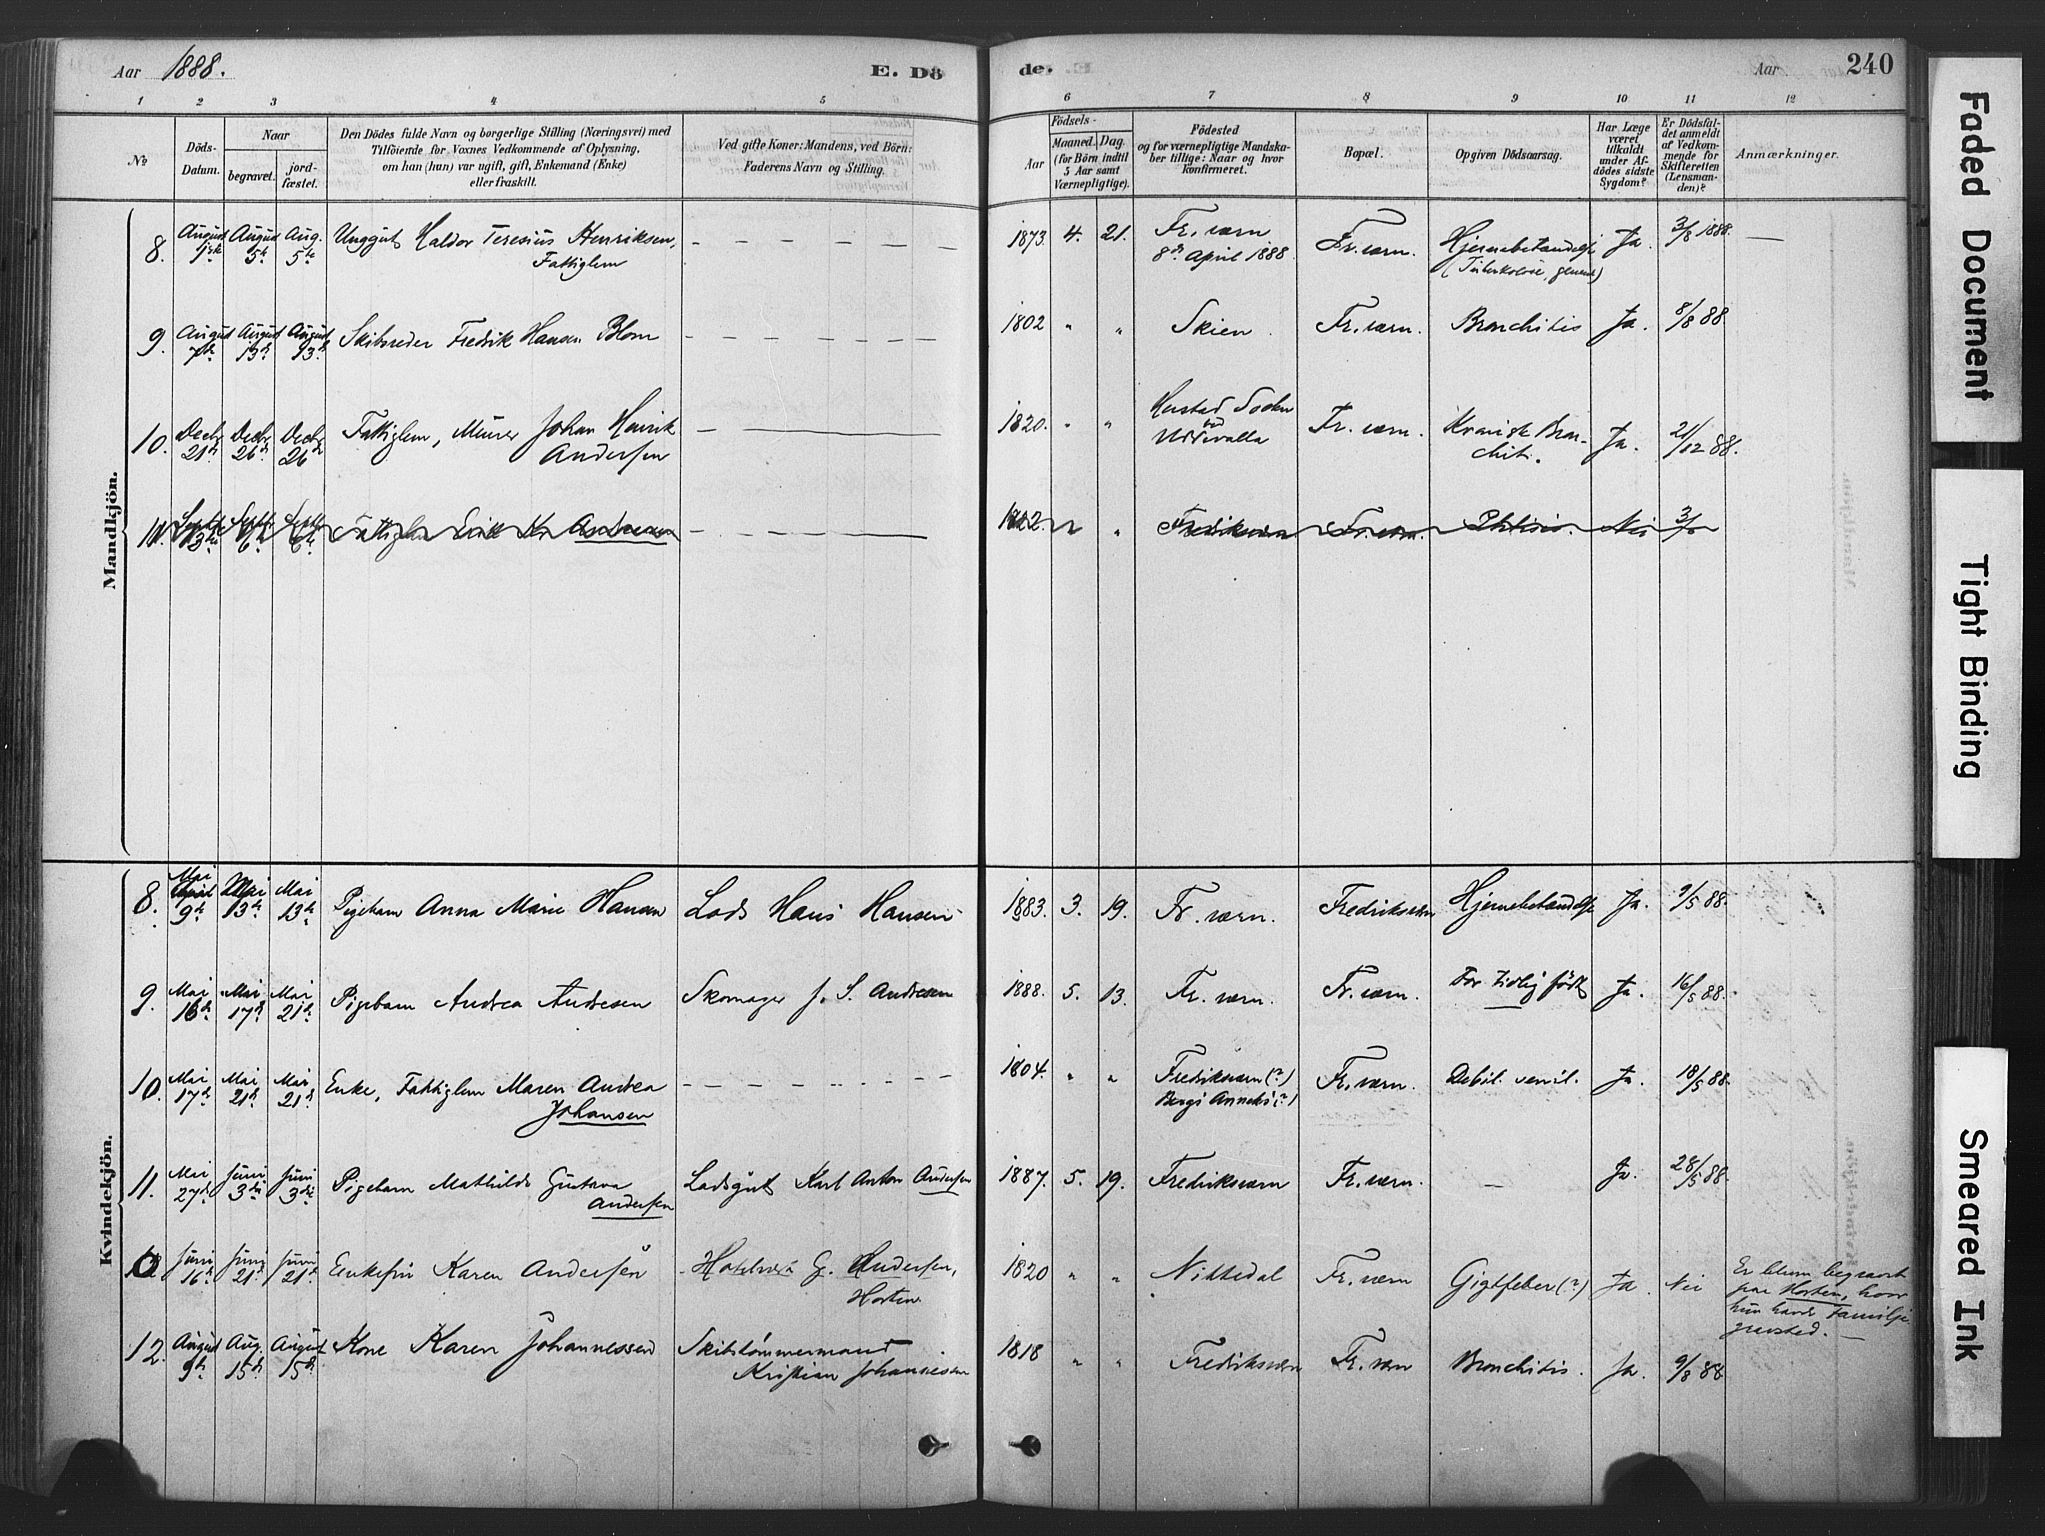 Aar 1888. E. Dö de. Aar 240
1 2 3 4 5 6 7 8 9 10 11 12
No
Döds-Datum.
Naar
begravet. jord-fæstet.
Den Dödes fulde Navn og borgerlige Stilling (Næringsvei) med
Tilföiende for Voxnes Vedkommende af Oplysning,
om han (hun) var ugift, gift, Enkemand (Enke)
eller fraskilt.
Ved gifte Koner: Mandens, ved Börn:
Faderens Navn og Stilling.
Födsels-
Aar Maaned. Dag.
(for Börn indtil
5 Aar samt
Værnepligtige).
Födested
og for værnepligtige Mandska-
ber tillige: Naar og hvor
konfirmeret.
Bopæl.
Opgiven Dödsaarsag.
Har Læge
været
tilkaldt
under Af-
dödes sidste
Sygdom?
Er Dödsfal-
det anmeldt
af Vedkom-
mende for
Skifteretten
(Lensman-
den)?
Anmærkninger.
Mandkjön.
8. August August 5te Aug. 5te Unggut Haldor Teresius Henriksen, Fattiglem 1873. 4. 21. Fr.værn 8de April 1888 Fr.værn. Hjernebetændelse Ja 3/8 1888. —
9. August 7de August 13de August 13de Skibsreder Fredrik Hansen Blom 1802 " " Skien. Fr.værn. Bronchitis Ja. 8/8 88
10. Decbr 21de Decbr 26de Decbr 26 Fattiglem, Murer Johan Henrik Andersen 1820. " " Uddevalla Fr.værn. Kronisk Bronchit. Ja. 21/12 88.
11. Septbr 3die Septbr 6te Septbr 6te Fattiglem Andresen " Fredriksværn Fr.værn. Phtisis. Nei 3/9
Kvindekjön.
8. Mai 9de Mai 13de Mai 13de Pigebarn Anna Marie Hansen Lods Hans Hansen 1883. 3. 19. Fr.værn. Fredriksværn Hjernebetændelse Ja. 9/5 88.
9. Mai 16de Mai 17de Mai 21de Pigebarn Andrea Andresen Skomager J. S. Andresen 1888. 5. 13. Fr.værn. Fr.værn. For tidlig født Ja. 16/5 88.
10. Mai 17de Mai 21de Mai 21de Enke, Fattiglem Maren Andrea Johansen 1804. " " Fredriksværn (?) Bergs Anneks (?) Fr.værn. Debil. senil. Ja. 18/5 88.
11. Mai 27de Juni 3die Juni 3die Pigebarn Mathilde Gustava Andersen Lodsgut Karl Anton Andersen 1887. 5. 19. Fredriksværn Fr.værn. — Ja. 28/5 88.
0 Juni 16de Juni 21de Juni 21de Enkefru Karen Andersen Hotelvært G. Andersen, Horten. 1820 " " Nittedal Fr.værn Gigtfeber (?) Ja. Nei Er blevn begravet paa Horten, hvor hun havde Familjegravsted. —
12. August 9de Aug. 15de August 15de Kone Karen Johannessen Skibstømmermand Kristian Johannessen 1818 " " Fredriksværn Fr.værn Bronchitis. Ja. 9/8 88
Faded Document
Tight Binding
Smeared Ink